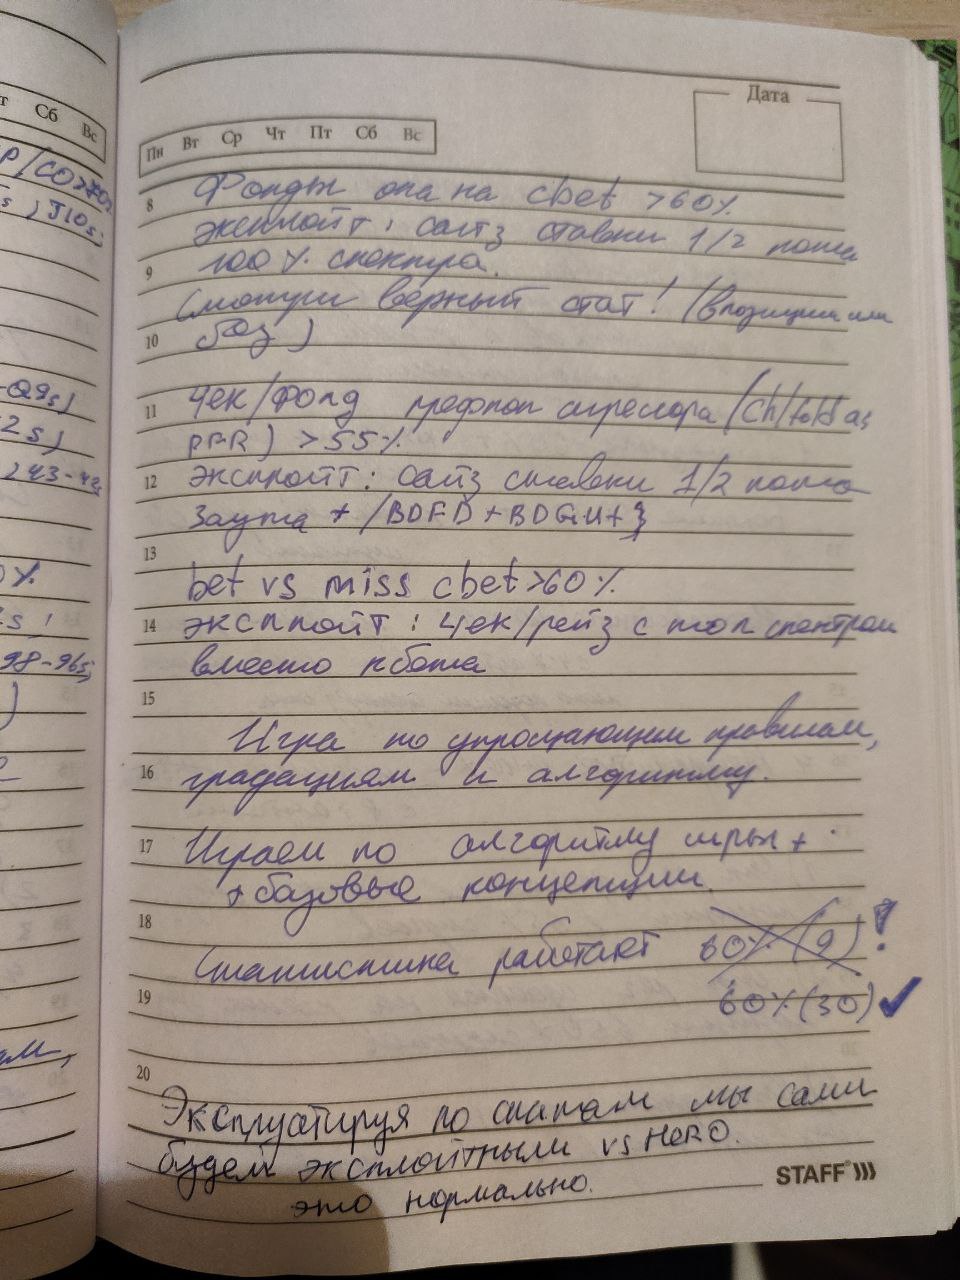 т Сб Вс
P/CO>70%
5s, J10s;
-Q9s)
2s)
243-42s
0%
98-96s;
)
Дата
Пн Вт Ср Чт Пт Сб Вс
8 Фолды опа на cbet >60%
эксплойт: сайз ставки 1/2 пота
9 100% спектра.
Смотри верный стат! (в позиции или
10 без)
11 Чек/Фолд префлоп агрессора (Ch/fold as
PFR) >55%
12 эксплойт: сайз ставки 1/2 пота
Заута + /BDFD + BDGut}
13
bet vs miss cbet >60%
14 эксплойт: чек/рейз с топ спектром
вместо кбета
15
Игра по упрощающим правилам,
16 градациям и алгоритму.
17 Играем по алгоритму игры +
+ базовые концепции.
18
Статистика работает 60% (9)!
19 60% (30) ✓
20
Эксплуатируя по статам мы сами
будем эксплойтными vs HERO.
это нормально.
STAFF